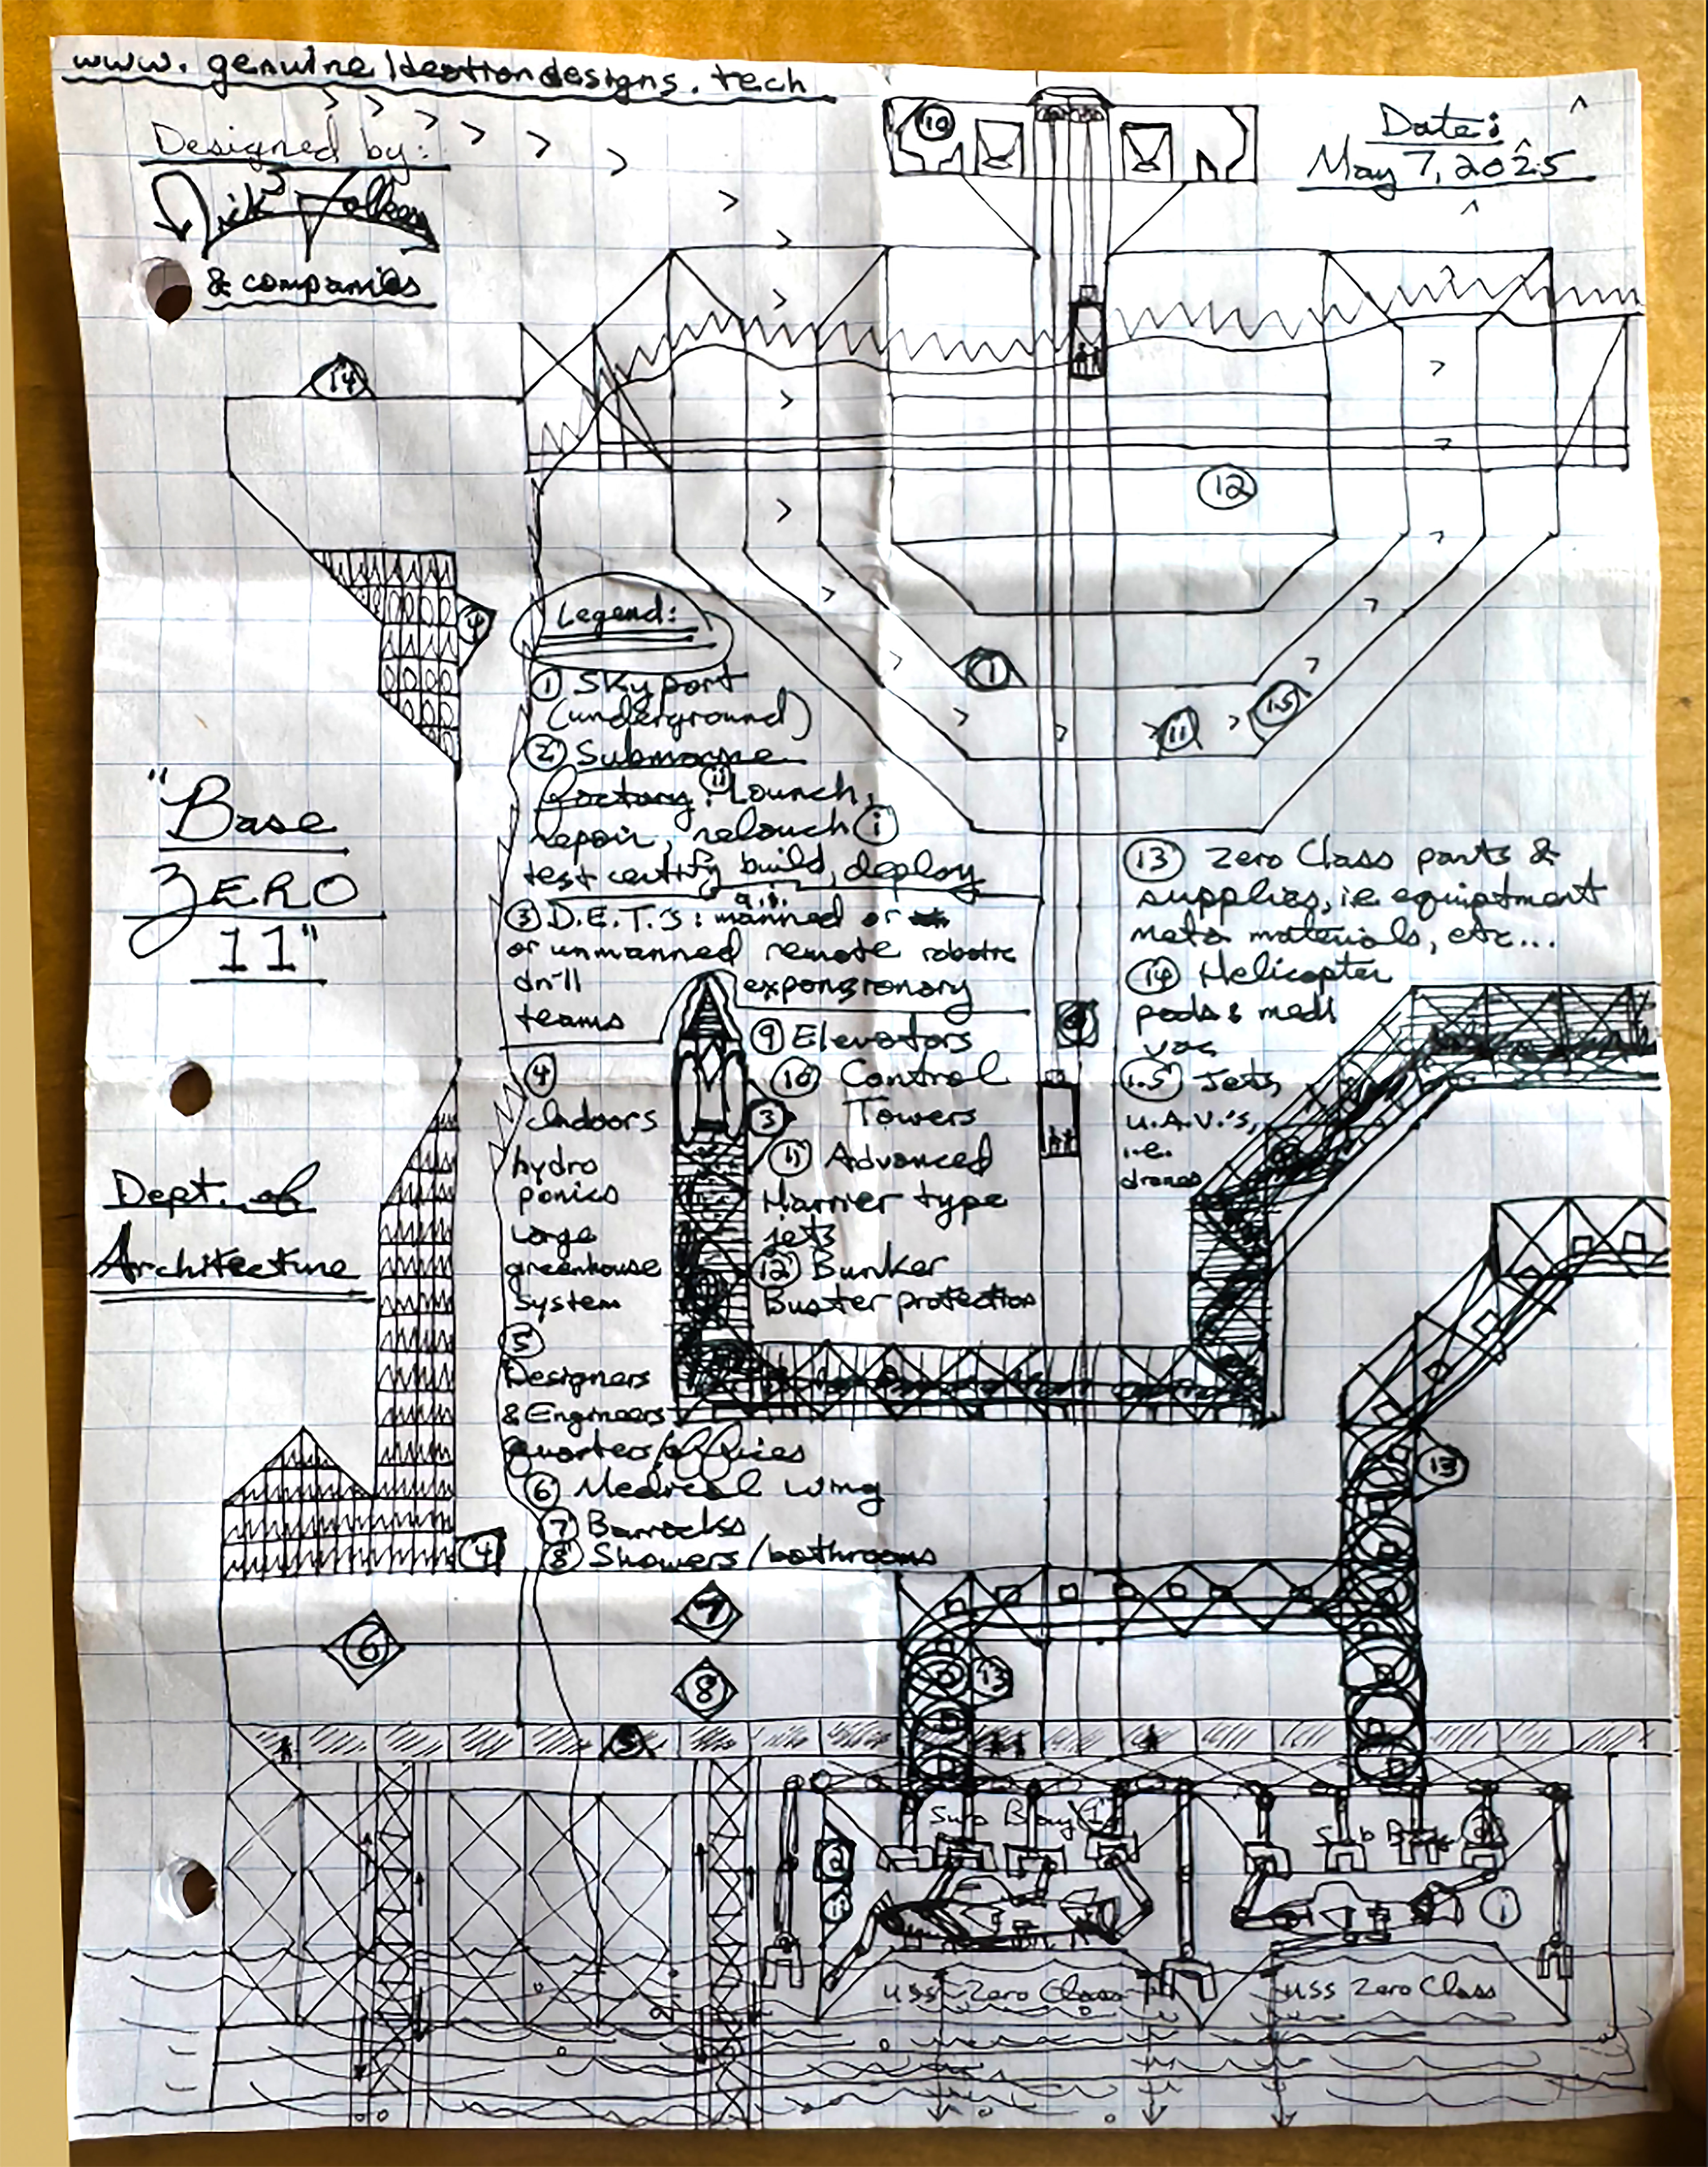 www.genuineideationdesigns.tech
Designed by:
Nick Folkes
& companies
Date:
May 7, 2025
10
14
12
4
Legend:
① Skyport
(underground)
② Submarine
factory: ⑪ Launch,
repair, relauch ⓘ
test certify build, deploy
③ D.E.T.'s: manned or
or unmanned remote robotic
drill
teams
expansionary
④
Indoors
hydro
ponics
Large
greenhouse
System
⑤
Designers
& Engineers
quarters/offices
⑥ Medical wing
⑦ Barracks
⑧ Showers/bathrooms
⑨ Elevators
⑩ Control
Towers
⑪ Advanced
Harrier type
jets
⑫ Bunker
Buster protection
⑬ Zero Class parts &
supplies, i.e. equiptment
meta materials, etc...
⑭ Helicopter
pads & medi
vac
1.5 Jets,
U.A.V.'s,
i.e.
drones
1
11
1.5
3
"Base
ZERO
11"
Dept. of
Architecture
13
4
6
7
8
13
5
Sub Bay
Sub Bay
USS Zero Class
USS Zero Class